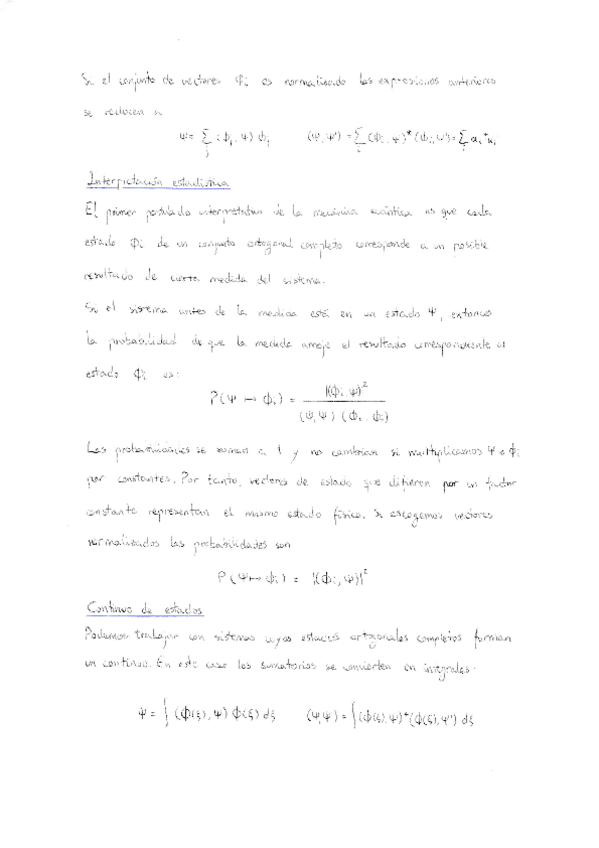 Si el conjunto de vectores Φi es normalizado las expresiones anteriores
se reducen a
Ψ = Σi (Φi, Ψ) Φi (Ψ, Ψ') = Σi (Φi, Ψ)* (Φi, Ψ') = Σi
Interpretación estadística
El primer postulado interpretativo de la mecánica cuántica es que cada
estado Φi de un conjunto ortogonal completo corresponde a un posible
resultado de cierta medida del sistema.
Si el sistema antes de la medida está en un estado Ψ, entonces
la probabilidad de que la medida arroje el resultado correspondiente al
estado Φi es:
P(Ψ ↦ Φi) = |(Φi, Ψ)|² / (Ψ, Ψ) (Φi, Φi)
Las probabilidades se suman a 1 y no cambian si multiplicamos Ψ o Φi
por constantes. Por tanto, vectores de estado que difieren por un factor
constante representan el mismo estado físico. Si escogemos vectores
normalizados las probabilidades son
P(Ψ ↦ Φi) = |(Φi, Ψ)|²
Continuo de estados
Podemos trabajar con sistemas cuyos estados ortogonales completos forman
un continuo. En este caso los sumatorios se convierten en integrales.
Ψ = ∫ (Φ(ξ), Ψ) Φ(ξ) dξ (Ψ, Ψ') = ∫ (Φ(ξ), Ψ)* (Φ(ξ), Ψ') dξ